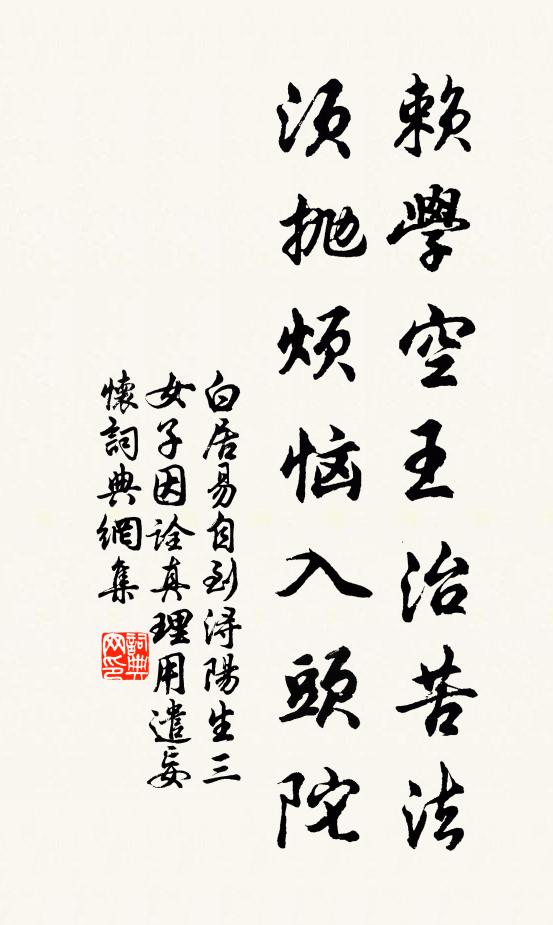 賴學空王治苦法
須拋煩惱入頭陀
白居易自到潯陽生三
女子因詮真理用遣妄
懷詞典網集
詞典网印